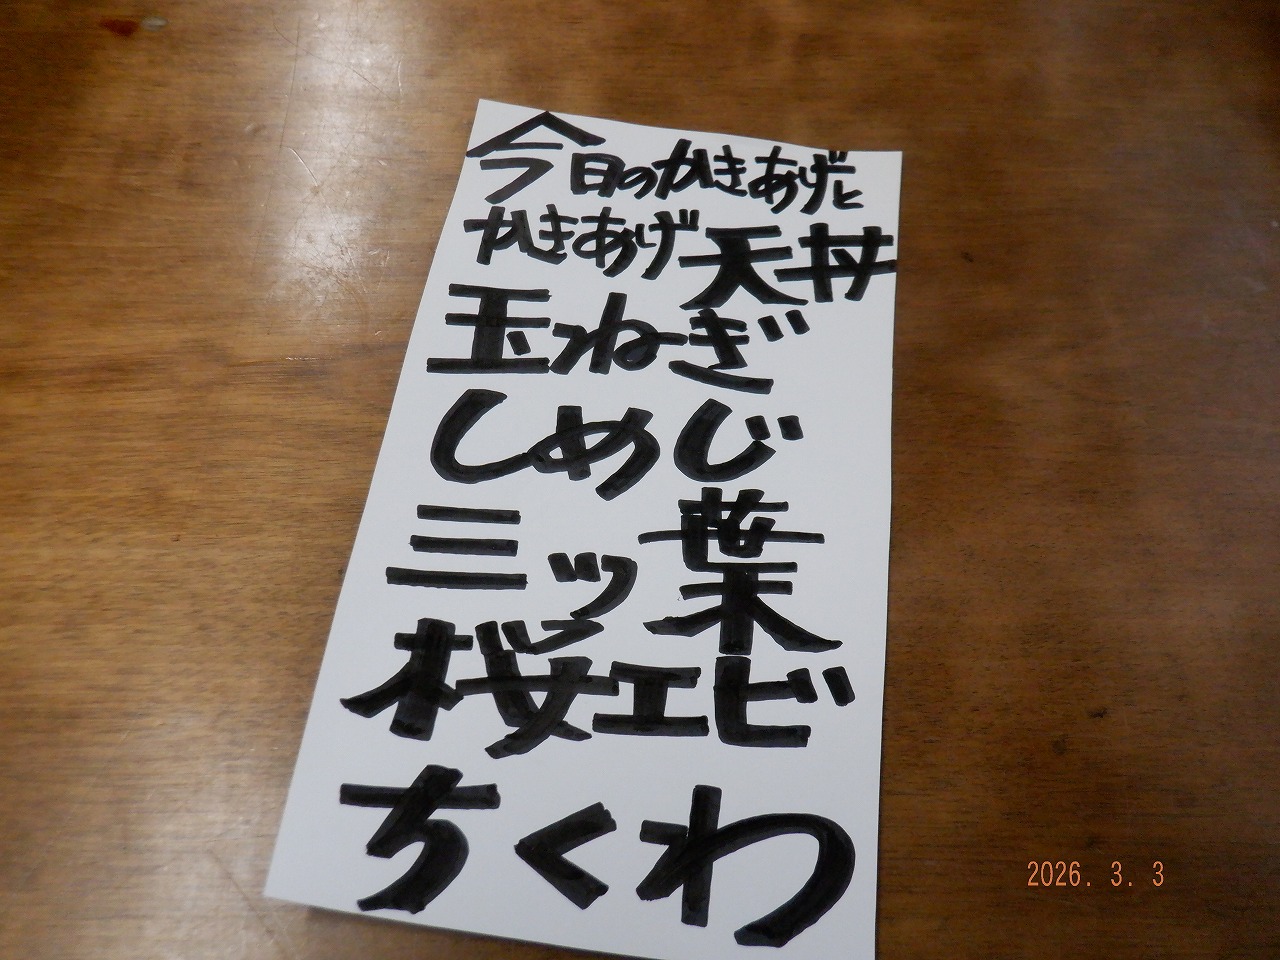 今日のかきあげと
かきあげ天丼
玉ねぎ
しめじ
三ッ葉
桜エビ
ちくわ
2026. 3. 3